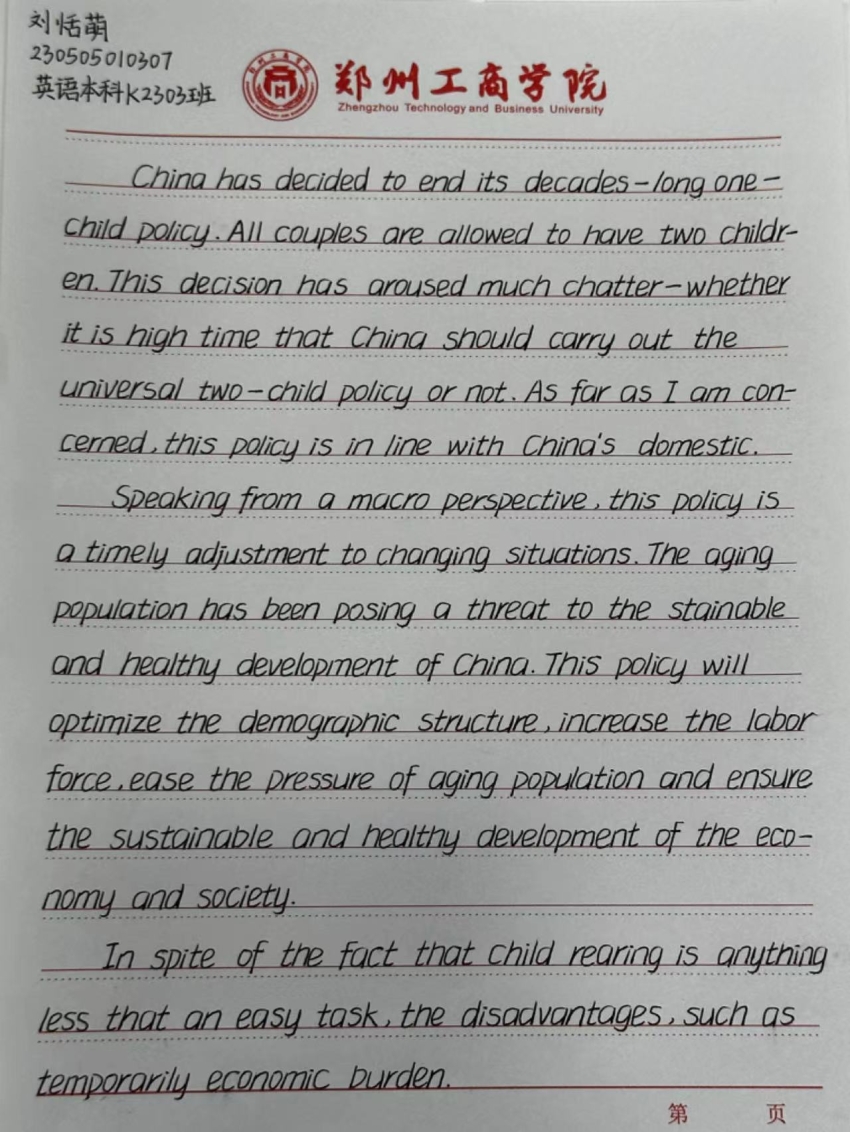 刘恬萌
230505010307
英语本科K2303班
郑州工商学院
Zhengzhou Technology and Business University
China has decided to end its decades-long one-
child policy. All couples are allowed to have two childr-
en. This decision has aroused much chatter-whether
it is high time that China should carry out the
universal two-child policy or not. As far as I am con-
cerned, this policy is in line with China's domestic.
Speaking from a macro perspective, this policy is
a timely adjustment to changing situations. The aging
population has been posing a threat to the stainable
and healthy development of China. This policy will
optimize the demographic structure, increase the labor
force, ease the pressure of aging population and ensure
the sustainable and healthy development of the eco-
nomy and society.
In spite of the fact that child rearing is anything
less that an easy task, the disadvantages, such as
temporarily economic burden.
第 页